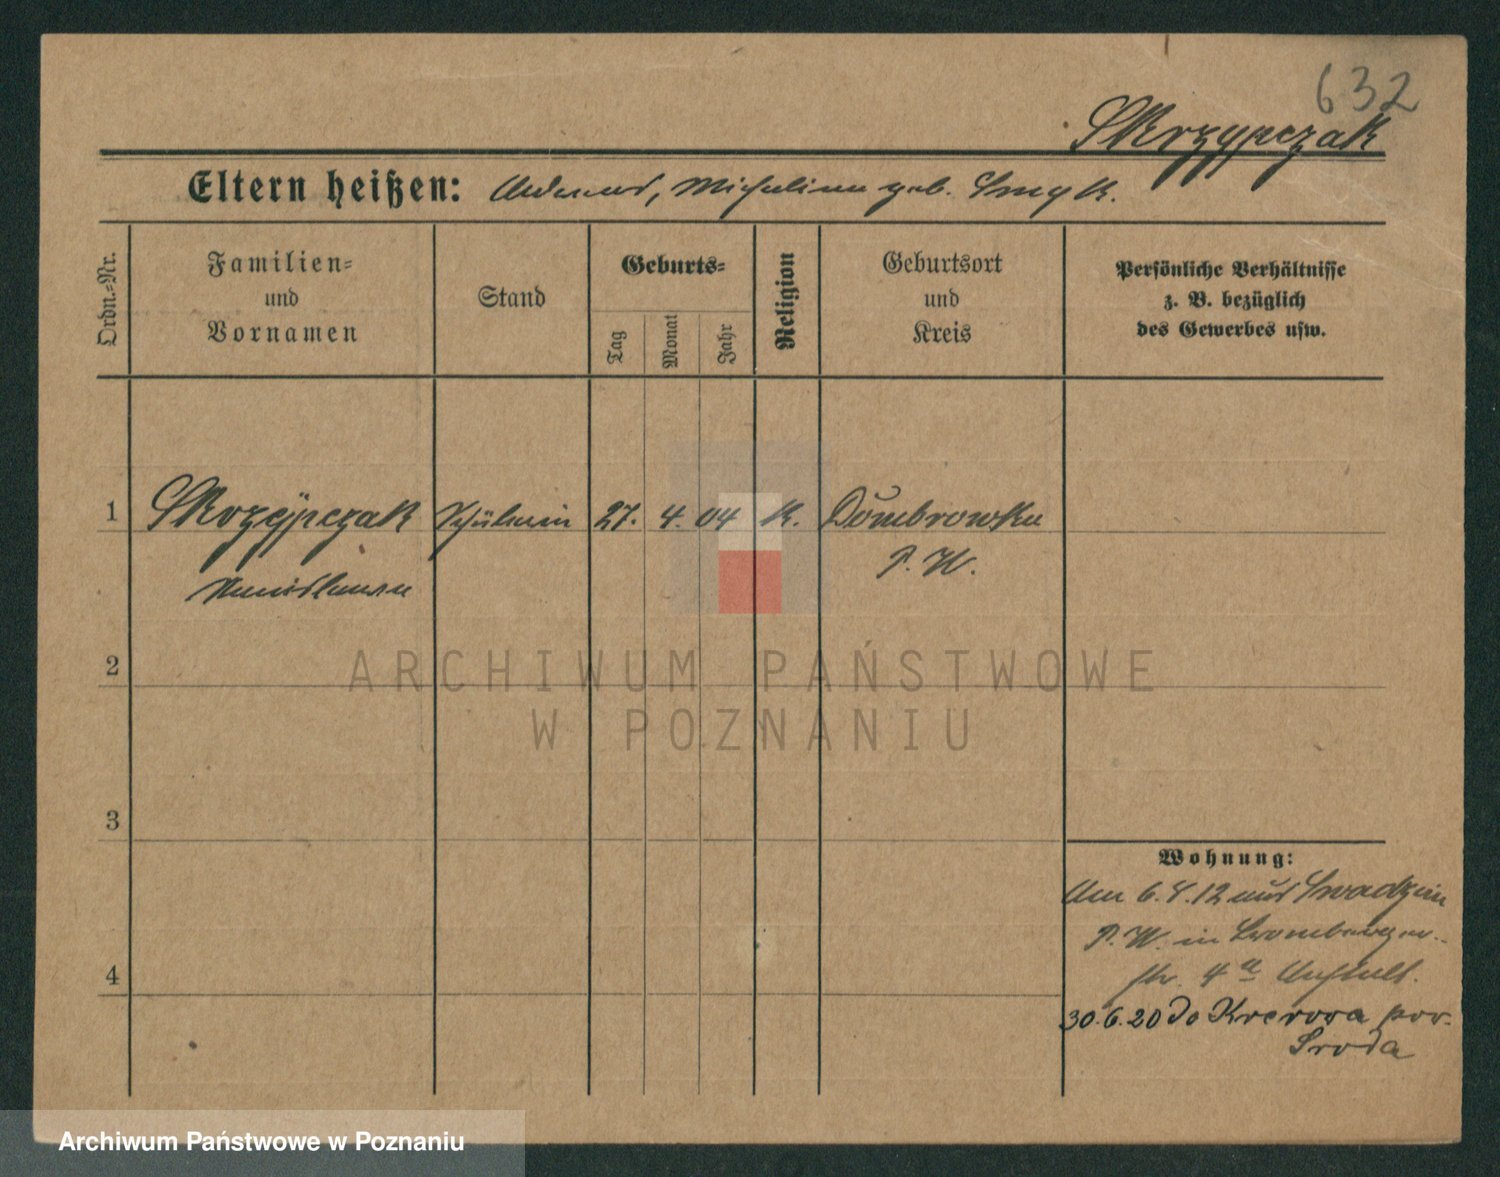 632
Skrzypczak
Eltern heißen: Andreas, Michalina geb. Smyk.
Ordn.-Nr.
Familien-
und
Vornamen
Stand
Geburts-
Tag
Monat
Jahr
Religion
Geburtsort
und
Kreis
Persönliche Verhältnisse
z. B. bezüglich
des Gewerbes usw.
1 Skrzypczak Schülerin 27. 4. 04 K. Dombrowka
Stanislawa P. W.
2
3
4
Wohnung:
Am 6.4.12 aus Swadzim
P. W. in Bromberger-
str. 4 a Anstalt.
30.6.20 do Krerowa pow.
Środa
ARCHIWUM PAŃSTWOWE
W POZNANIU
Archiwum Państwowe w Poznaniu